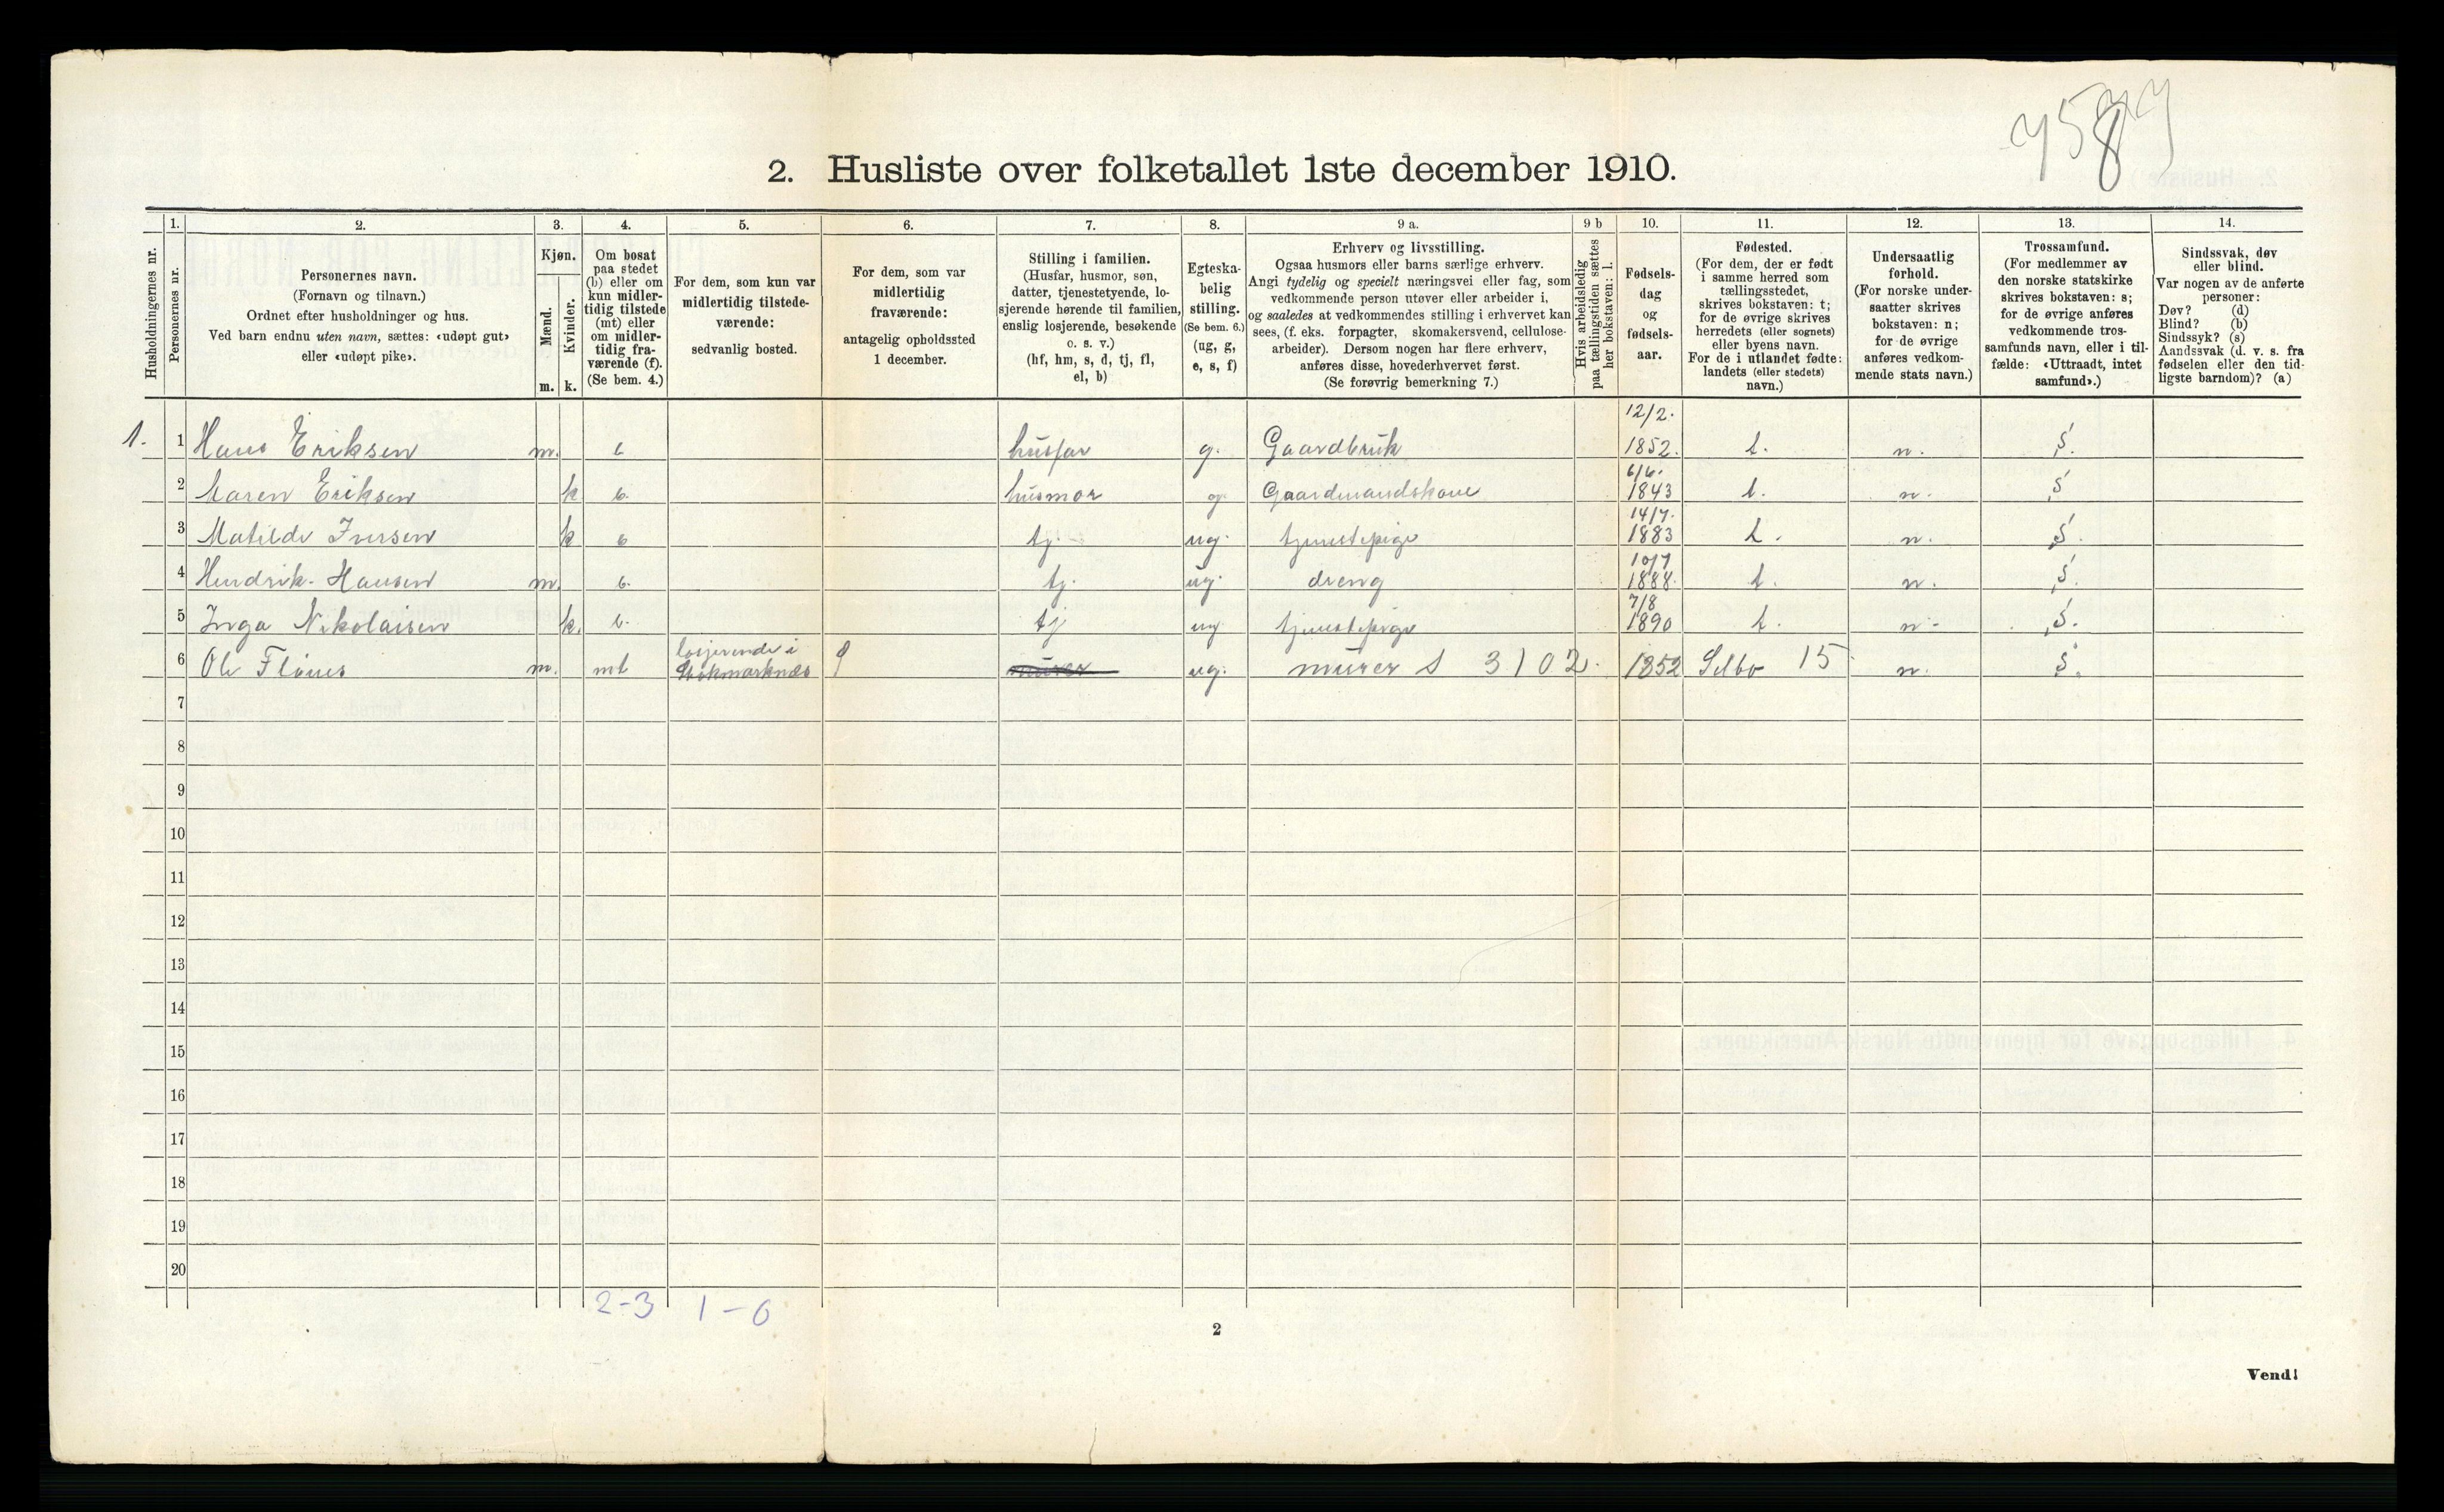 7589
2. Husliste over folketallet 1ste december 1910.
Husholdningernes nr.
1.
Personernes nr.
2.
Personernes navn.
(Fornavn og tilnavn.)
Ordnet efter husholdninger og hus.
Ved barn endnu uten navn, sættes: «udøpt gut»
eller «udøpt pike».
3.
Kjøn.
Mænd.
m.
Kvinder.
k.
4.
Om bosat
paa stedet
(b) eller om
kun midler-
tidig tilstede
(mt) eller
om midler-
tidig fra-
værende (f).
(Se bem. 4.)
5.
For dem, som kun var
midlertidig tilstede-
værende:
sedvanlig bosted.
6.
For dem, som var
midlertidig
fraværende:
antagelig opholdssted
1 december.
7.
Stilling i familien.
(Husfar, husmor, søn,
datter, tjenestetyende, lo-
sjerende hørende til familien,
enslig losjerende, besøkende
o. s. v.)
(hf, hm, s, d, tj, fl,
el, b)
8.
Egteska-
belig
stilling.
(Se bem. 6.)
(ug, g,
e, s, f)
9 a.
Erhverv og livsstilling.
Ogsaa husmors eller barns særlige erhverv.
Angi tydelig og specielt næringsvei eller fag, som
vedkommende person utøver eller arbeider i,
og saaledes at vedkommendes stilling i erhvervet kan
sees, (f. eks. forpagter, skomakersvend, cellulose-
arbeider). Dersom nogen har flere erhverv,
anføres disse, hovederhvervet først.
(Se forøvrig bemerkning 7.)
9 b
Hvis arbeidsledig
paa tællingstiden sættes
her bokstaven: l.
10.
Fødsels-
dag
og
fødsels-
aar.
11.
Fødested.
(For dem, der er født
i samme herred som
tællingsstedet,
skrives bokstaven: t;
for de øvrige skrives
herredets (eller sognets)
eller byens navn.
For de i utlandet fødte:
landets (eller stedets)
navn.)
12.
Undersaatlig
forhold.
(For norske under-
saatter skrives
bokstaven: n;
for de øvrige
anføres vedkom-
mende stats navn.)
13.
Trossamfund.
(For medlemmer av
den norske statskirke
skrives bokstaven: s;
for de øvrige anføres
vedkommende tros-
samfunds navn, eller i til-
fælde: «Uttraadt, intet
samfund».)
14.
Sindssvak, døv
eller blind.
Var nogen av de anførte
personer:
Døv? (d)
Blind? (b)
Sindssyk? (s)
Aandssvak (d. v. s. fra
fødselen eller den tid-
ligste barndom)? (a)
1. 1 Hans Eriksen m. b husfar g. Gaardbruk 12/2. 1852. t. n. s.
2 Maren Eriksen k b. husmor g. Gaardmandskone 6/6. 1843 t. n. s
3 Matilde Iversen k b tj. ug. tjenestepige 14/7. 1883 t. n. s.
4 Hendrik Hansen m. b. tj. ug. dreng 10/7 1888. t. n. s.
5 Inga Nikolaisen k. b. tj ug tjenestepige 7/8 1890 t. n. s.
6 Ole m. mt losjerende i Stokmarknes 9 murer ug. murer 3102. 1852 Selbo 15 n. s.
7
8
9
10
11
12
13
14
15
16
17
18
19
20
2-3 1-0
2
Vend!